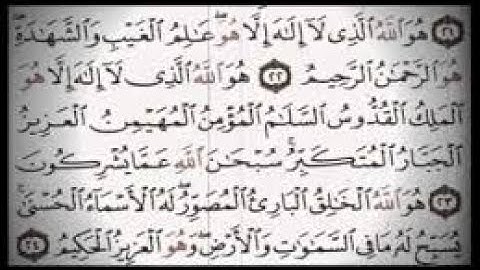 ﴿٢١﴾ هُوَ ٱللَّهُ ٱلَّذِى لَآ إِلَٰهَ إِلَّا هُوَ ۖ عَٰلِمُ ٱلْغَيْبِ وَٱلشَّهَٰدَةِ ۖ
هُوَ ٱلرَّحْمَٰنُ ٱلرَّحِيمُ ﴿٢٢﴾ هُوَ ٱللَّهُ ٱلَّذِى لَآ إِلَٰهَ إِلَّا هُوَ
ٱلْمَلِكُ ٱلْقُدُّوسُ ٱلسَّلَٰمُ ٱلْمُؤْمِنُ ٱلْمُهَيْمِنُ ٱلْعَزِيزُ
ٱلْجَبَّارُ ٱلْمُتَكَبِّرُ ۚ سُبْحَٰنَ ٱللَّهِ عَمَّا يُشْرِكُونَ
﴿٢٣﴾ هُوَ ٱللَّهُ ٱلْخَٰلِقُ ٱلْبَارِئُ ٱلْمُصَوِّرُ ۖ لَهُ ٱلْأَسْمَآءُ ٱلْحُسْنَىٰ ۚ
يُسَبِّحُ لَهُۥ مَا فِى ٱلسَّمَٰوَٰتِ وَٱلْأَرْضِ ۖ وَهُوَ ٱلْعَزِيزُ ٱلْحَكِيمُ ﴿٢٤﴾